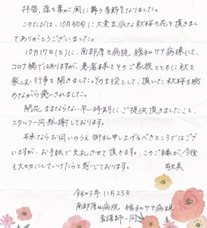 拝啓 落ち葉が風に舞う季節となりました。
このたびは、10月初旬に大変立派な秋桜の花を頂きまして
ありがとうございました。
10月17日(日)に、南部厚生病院 緩和ケア病棟にて、
コロナ禍ではありますが、患者様とそのご家族とともに秋を
楽しむ行事を開きました。その日を彩として、頂いた秋桜を眺
めながら
開花まもならない早い時期に、ご提供頂きましたこと、
スタッフ一同感謝しております。
本来ならお伺いのうえ御礼申し上げるべきところでござ
いますが、お手紙で失礼させて頂きます。このご縁が、今後
も大切にしていけたらと感じております。
敬具
令和3年11月25日
南部厚生病院 緩和ケア病棟
看護師一同